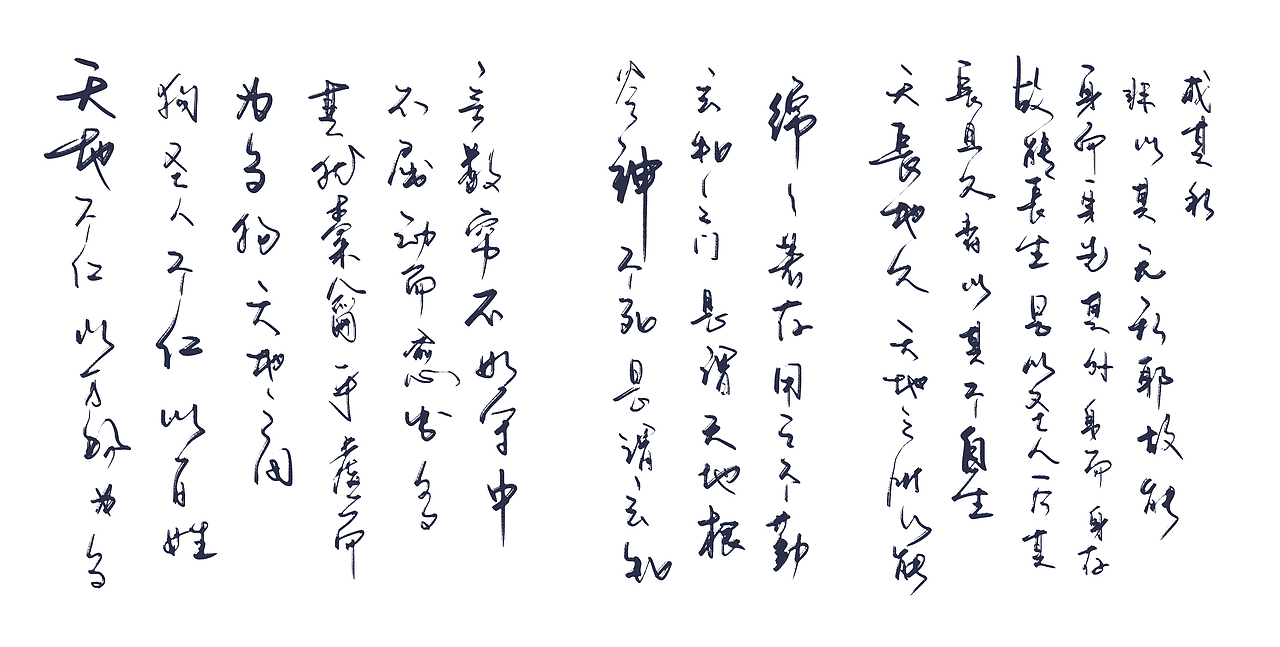 天地不仁以万物为刍
狗圣人不仁以百姓
为刍狗天地之间
其犹橐龠乎虚而
不屈动而愈出多
言数穷不如守中
谷神不死是谓玄牝
玄牝之门是谓天地根
绵々若存用之不勤
天長地久天地之所以能
長且久者以其不自生
故能長生是以圣人后其
身而身先其外身而身存
非以其无私耶故能
成其私